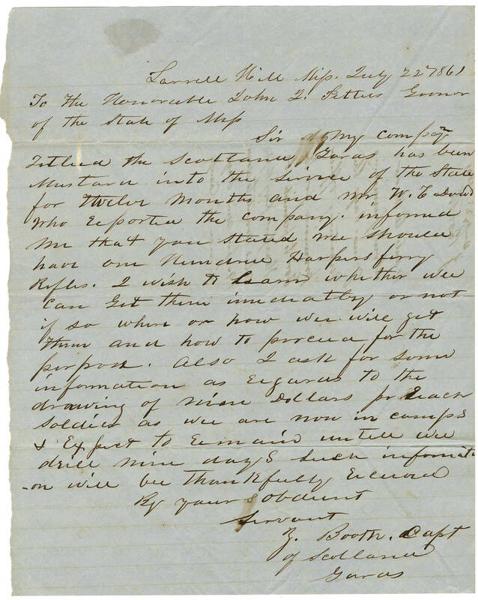 Laurell Hill Mip. July 22nd 1861
To the Honorable John J. Pettus Govnor
of the State of Mip
Sir as My company
Titled the Scotland Gards has been
Mustard into the Service of the State
for Twelve Months and Mr W. E Dodd
who Reported the company. informed
me that you stated we should
have one Hundred Harpers ferry
Rifles. I wish to Learn whether we
can Get them imediatly or not
if so when or how we will get
them and how to proceed for the
purpose. Also I ask for some
information as Regards to the
drawing of nine Dollars pr Each
Soldier as we are now in camps
& Expect to Remain untill we
drill nine days Such informati
-on will be thankfully Recieved
By your obdient
Servant
Z. Booth. Capt
of Scotland
Gards